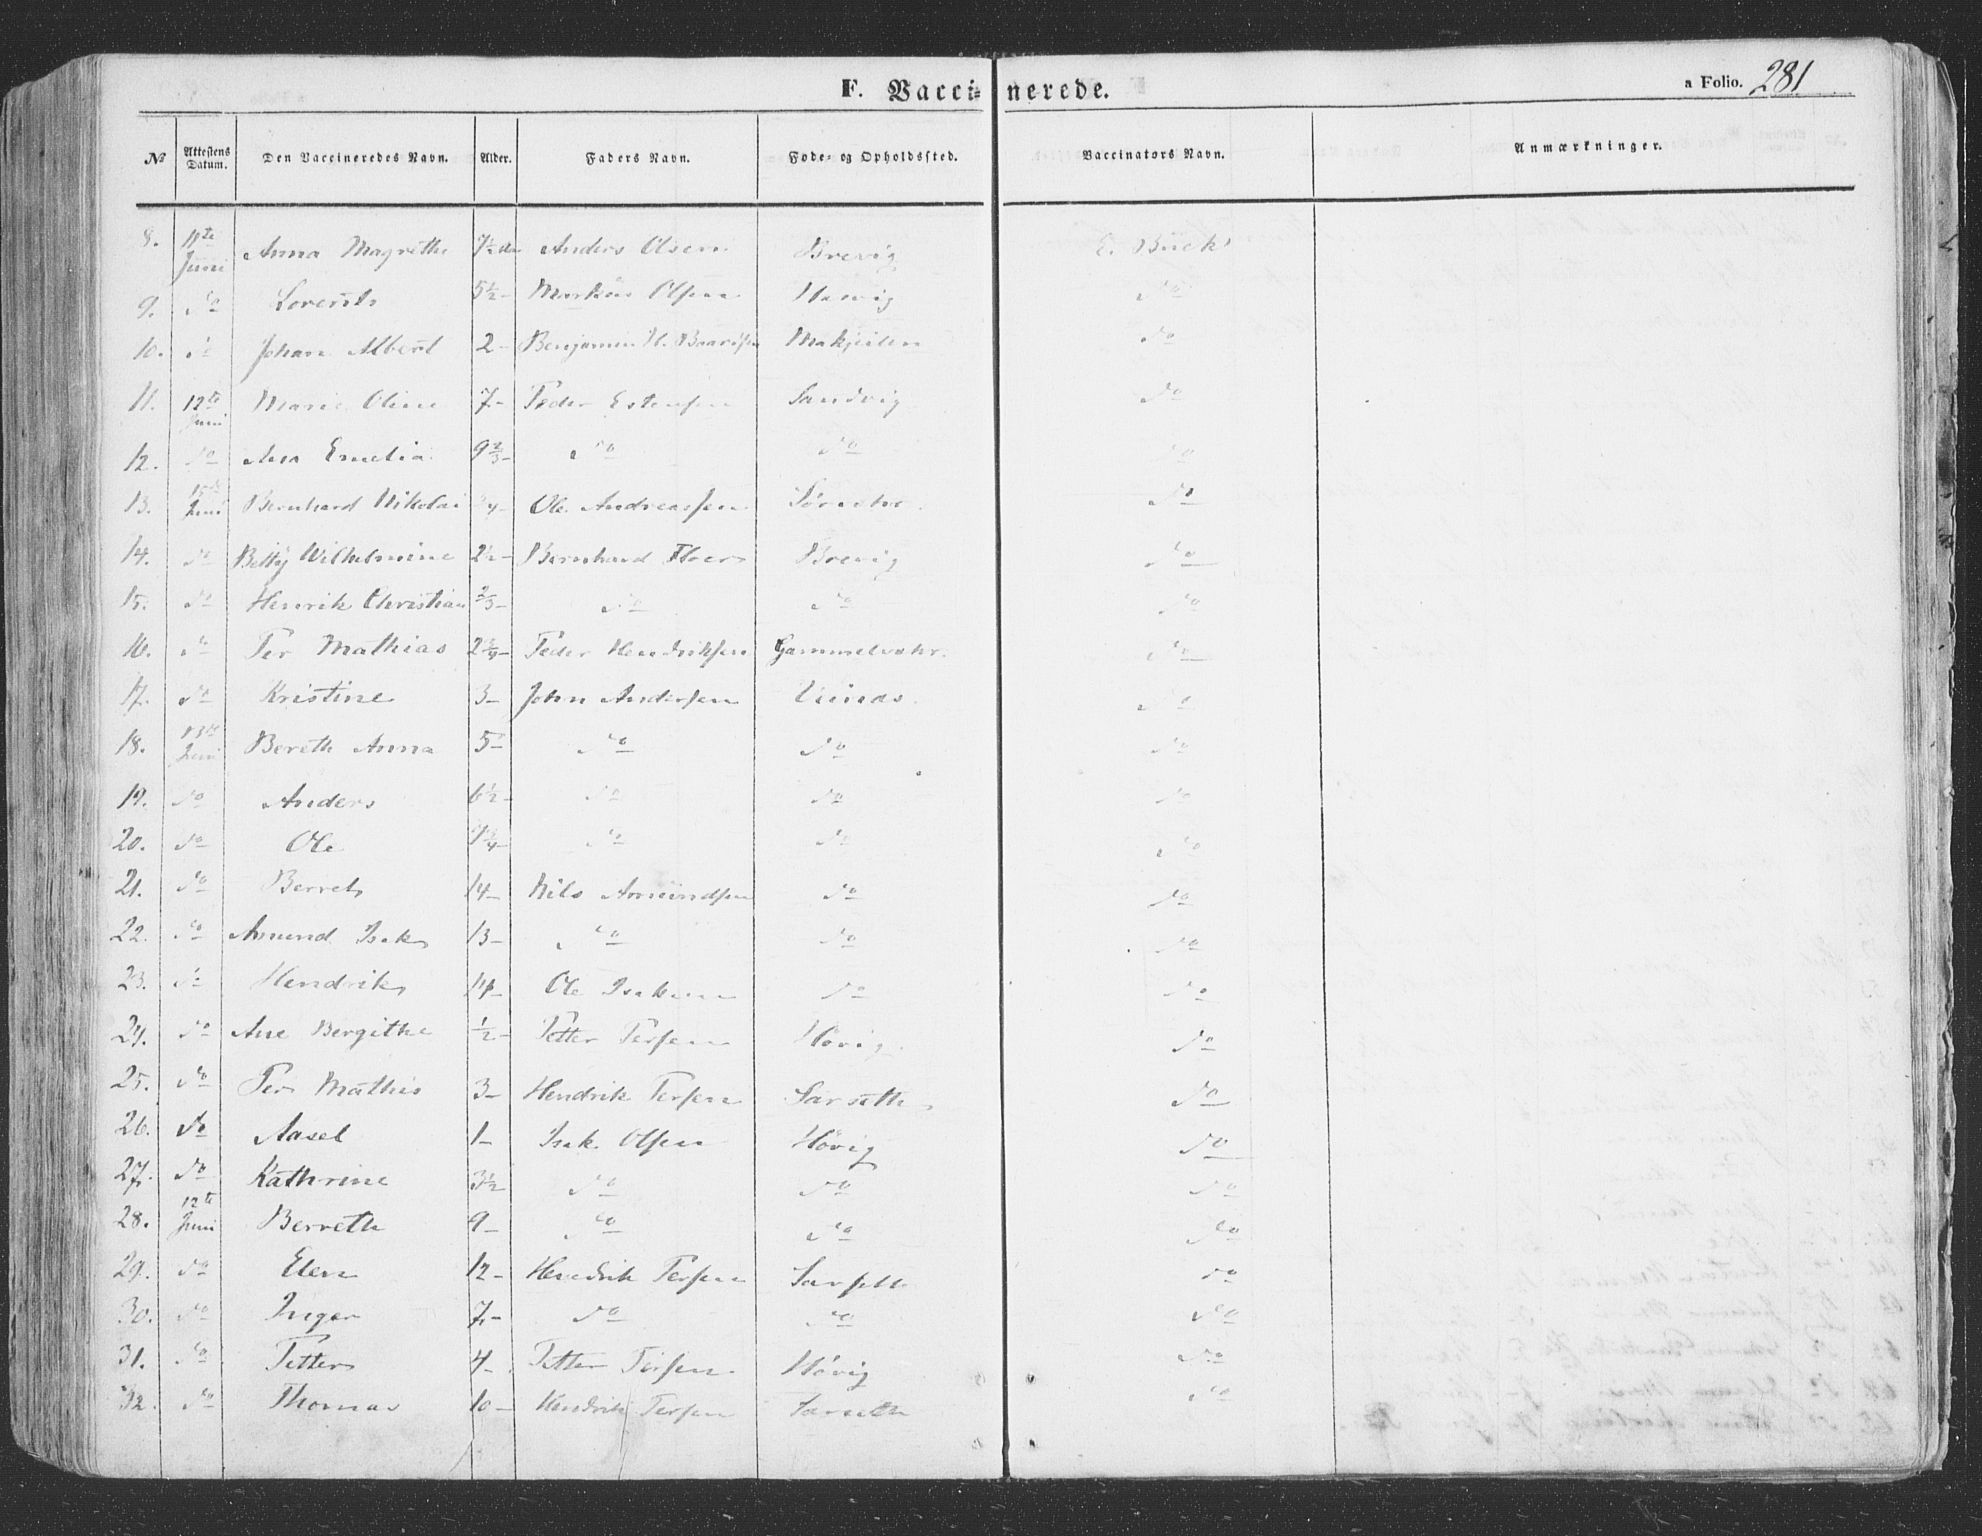 F. Vaccinerede.
a Folio. 281
No Attestens Datum. Den Vaccineredes Navn. Alder. Faders Navn. Føde- og Opholdssted. Vaccinators Navn. Anmærkninger.
8. 11te Juni Anna Magrethe 7½ Anders Olsen Brevig E. Buck
9. do Lorents 5½ - Markus Olsen do
10. do Johan Albert 2 - Benjamin H. do
11. 12te Juni Marie Oline 7 - Peder Estensen Sandvig do
12. do Ana Emelia 9⅔ - do do do
13. Juni Bernhard Nikolai Ole Andreassen do
14. do Betty Wilhelmine 2½ - Bernhard Brevig do
15. do Henrik Christian ⅔ - do do do
16. do Per Mathias Peder Hendriksen Gammelvehr. do
17. do Kristine 3 - John Andersen do
18. 13de Juni Bereth Anna 5 - do do do
19. do Anders 6½ - do do do
20. do Ole do do do
21. do Berret 14 - Nils Amundsen do do
22. do Amund Isak 13 - do do do
23. do Hendrik 14 - Ole Isaksen do do
24. do Ane Bergithe ½ - Petter Persen Høvig do
25. do Per Mathis 3 - Hendrik Persen Sarseth do
26. do Aasel 1 - Isak Olsen Høvig do
27. do Kathrine 3½ do do do
28. 12te Juni Berreth 9 - do do do
29. do Elen 12 - Hendrik Persen Sarseth do
30. do Inger 7 - do do do
31. do Petter 4 - Petter Persen Høvig do
32. do Thomas 10 - Hendrik Persen Sarseth do